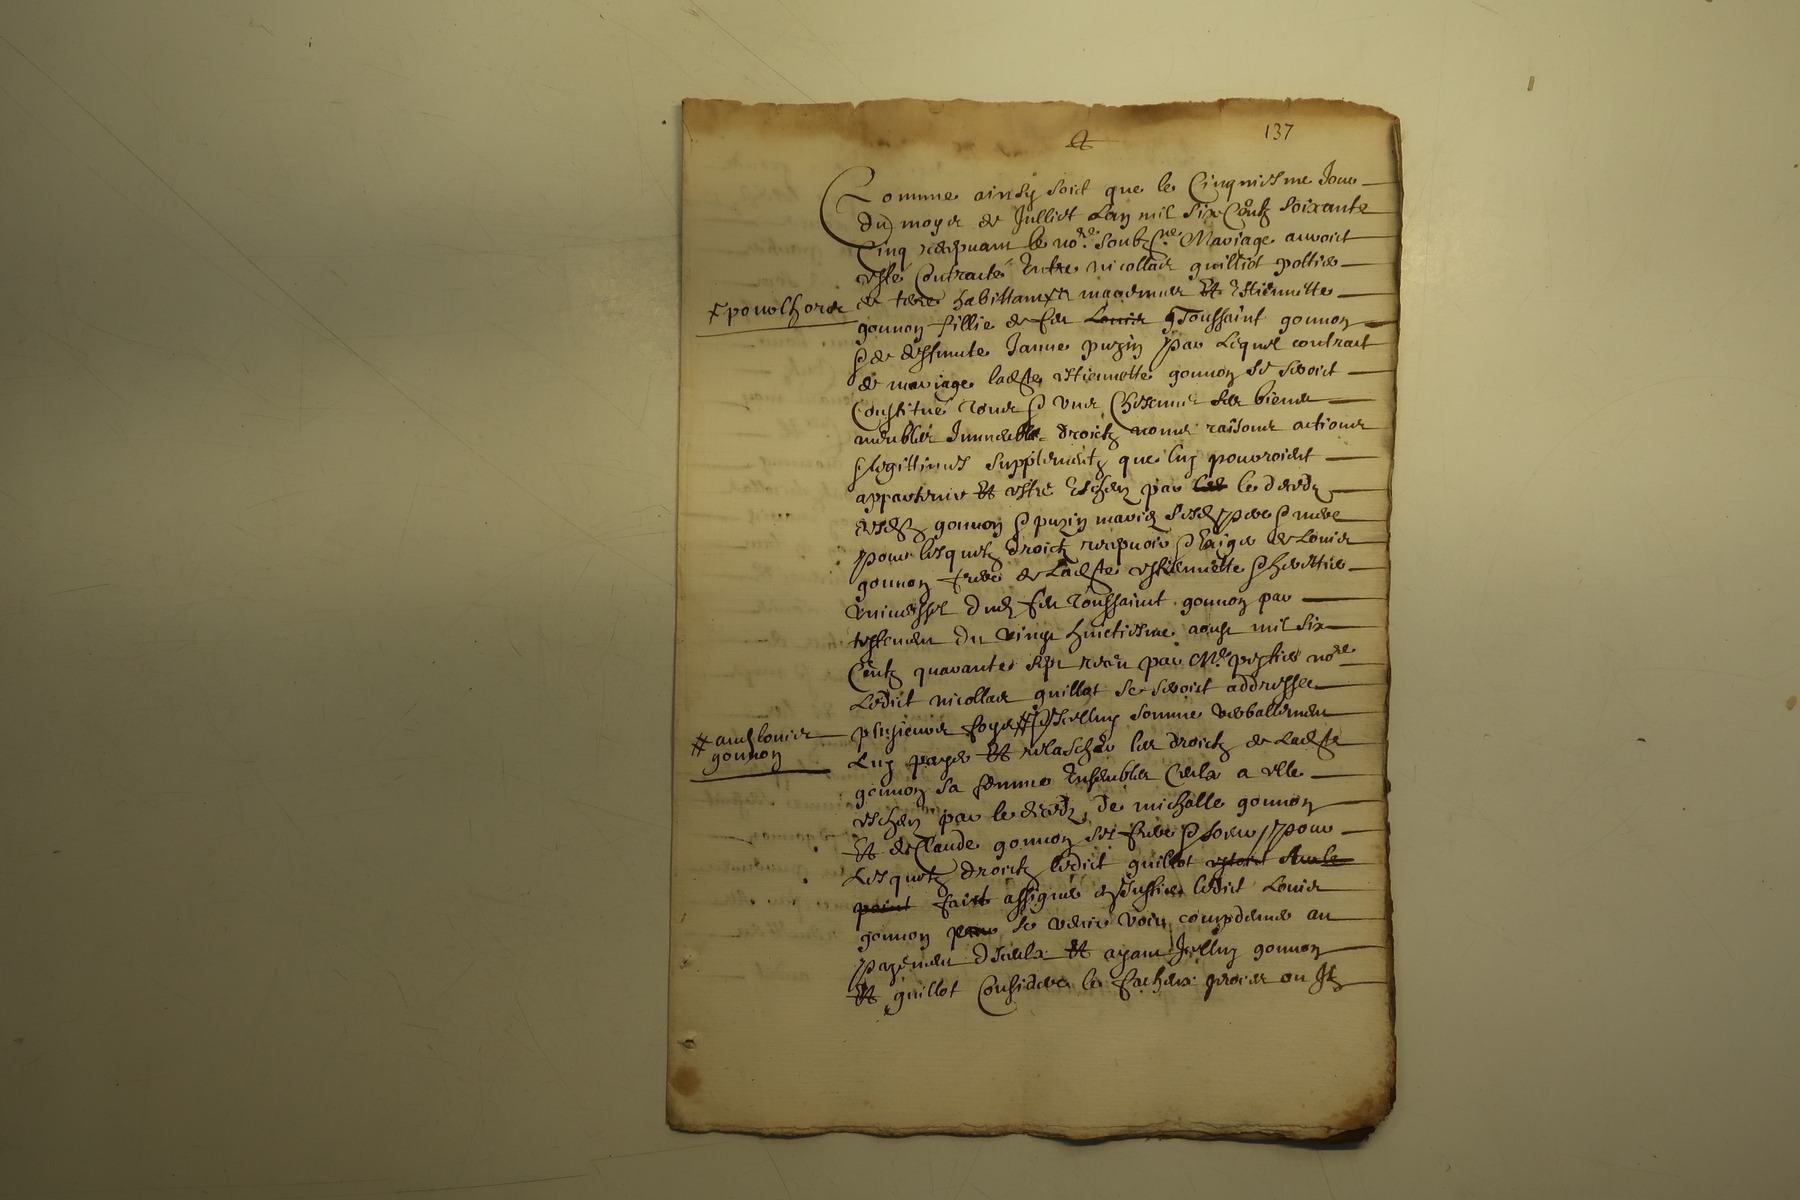 137
Comme ainsy soict que le Cinquiesme Jour
du moys de Jullict Lan mil Six Centz Soixante
Cinq recepuant le nore. soubzne. Mariage auroict
esté Contracté Entre nicollas guilliot pottier
de terre habittant x Et Estiennette
x pour lhors
gonnon fillie de feu Louis Toussaint gonnon
& de deffunte Janne puzin par Lequel contract
de mariage ladste estiennette gonnon se seroict
Constitué tous & uns Chescuns ses biens
meubles Immeubles droictz noms raisons actions
& legittimes supplementz que luy pouvroient
appartenir Et estre Escheu par les le deces
gonnon & puzin mariez père & mere
pour lesquelz droictz & de Louis
gonnon frere de Ladste estiennette & herittier
universsel dud feu Toussaint gonnon par
testemen du vingt huictiesme aoust mil six
Centz quarante sept receu par Me. nore
Ledict nicollas guillot se seroict addressé
plusieurs foys # & Icelluy sommé verballemen
# aud louis
gonnon
Luy payer Et relascher les droictz de Ladste
gonnon sa femme Ensembles Ceulx a elle
escheu par le deces de michelle gonnon
Et de Claude gonnon ses frere & soeur / pour
Lesquelz droictz ledict guillot
point faict assigner en Justice ledict Louis
gonnon pour se venir voir compdemné au
payemen diceulx Et ayant Jcelluy gonnon
Et guillot Consideré le facheux proces ou Jlz